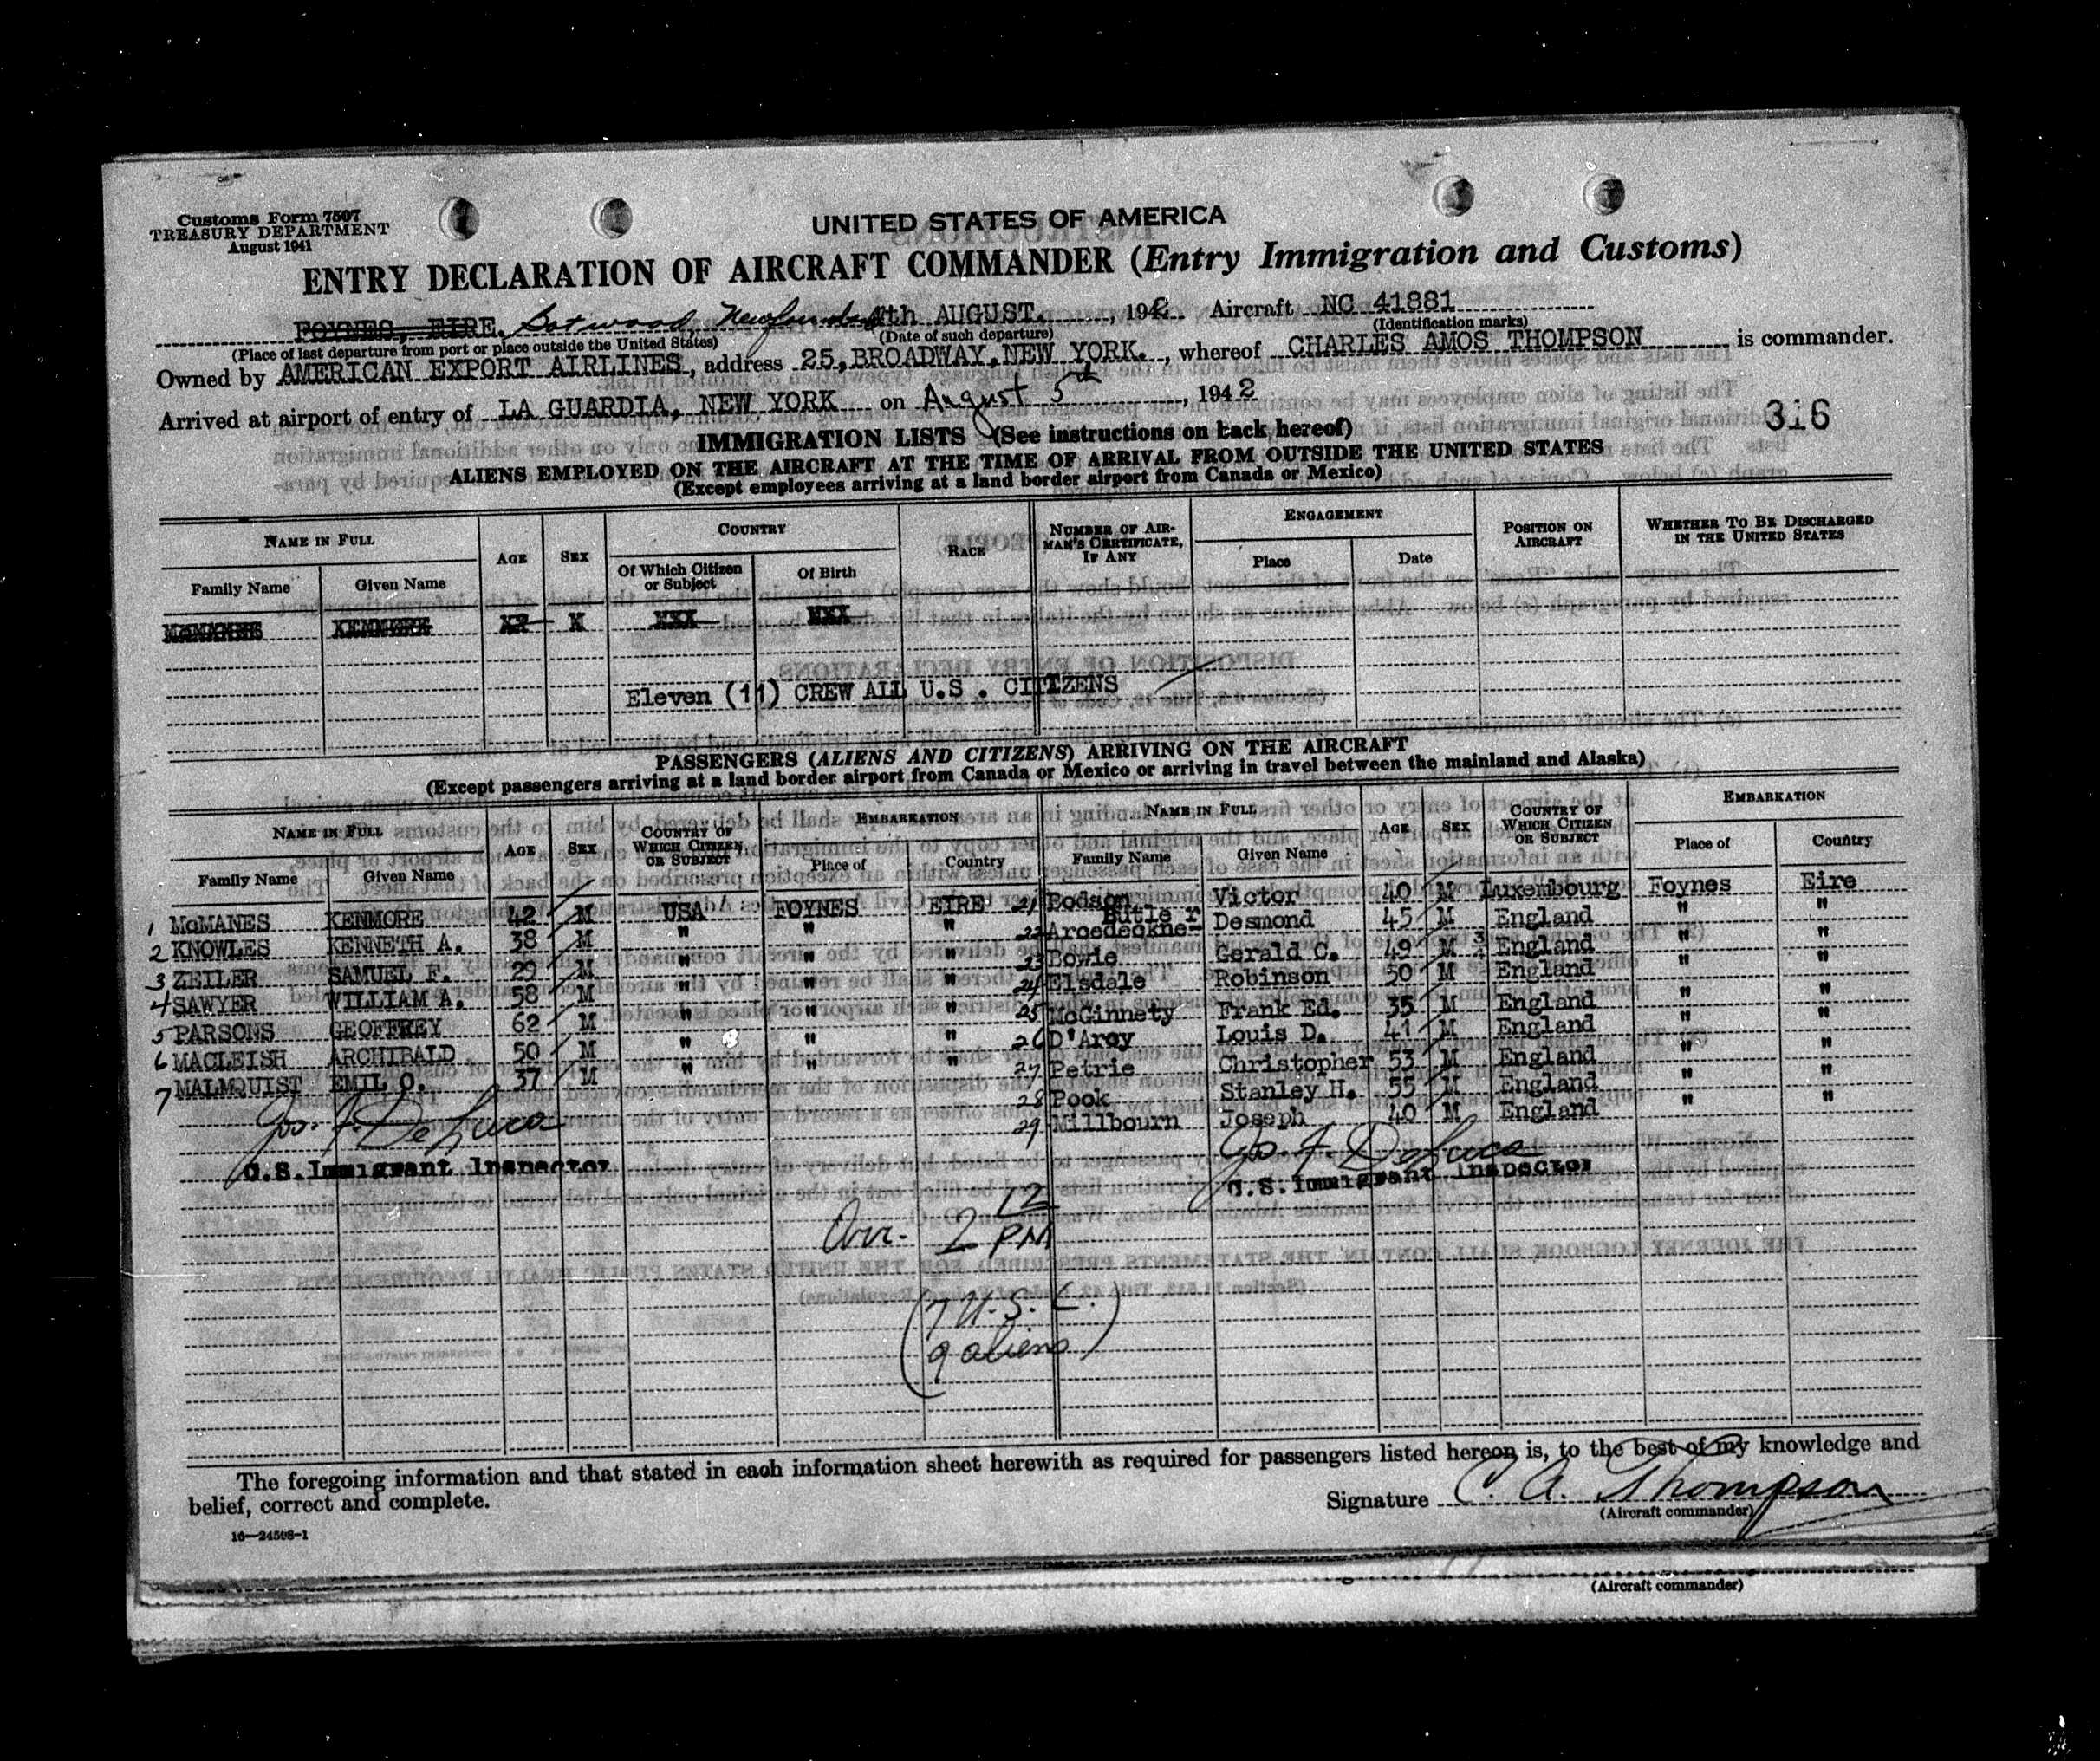 Customs Form 7507
TREASURY DEPARTMENT
August 1941
UNITED STATES OF AMERICA
ENTRY DECLARATION OF AIRCRAFT COMMANDER (Entry Immigration and Customs)
FOYNES, EIRE. Botwood, Newfoundland th AUGUST. , 1942 Aircraft NC 41881
(Place of last departure from port or place outside the United States) (Date of such departure) (Identification marks)
Owned by AMERICAN EXPORT AIRLINES, address 25, BROADWAY, NEW YORK. , whereof CHARLES AMOS THOMPSON is commander.
Arrived at airport of entry of LA GUARDIA, NEW YORK on August 5th , 1942
316
IMMIGRATION LISTS (See instructions on back hereof)
ALIENS EMPLOYED ON THE AIRCRAFT AT THE TIME OF ARRIVAL FROM OUTSIDE THE UNITED STATES
(Except employees arriving at a land border airport from Canada or Mexico)
NAME IN FULL AGE SEX COUNTRY RACE NUMBER OF AIRMAN'S CERTIFICATE, IF ANY ENGAGEMENT POSITION ON AIRCRAFT WHETHER TO BE DISCHARGED IN THE UNITED STATES
Family Name Given Name Of Which Citizen or Subject Of Birth Place Date
McMANES KENMORE XX X XXX XXX
Eleven (11) CREW ALL U.S. CITIZENS
PASSENGERS (ALIENS AND CITIZENS) ARRIVING ON THE AIRCRAFT
(Except passengers arriving at a land border airport from Canada or Mexico or arriving in travel between the mainland and Alaska)
NAME IN FULL AGE SEX COUNTRY OF WHICH CITIZEN OR SUBJECT EMBARKATION NAME IN FULL AGE SEX COUNTRY OF WHICH CITIZEN OR SUBJECT EMBARKATION
Family Name Given Name Place of Country Family Name Given Name Place of Country
1 McMANES KENMORE 42 M USA FOYNES EIRE 21 Bodson Victor 40 M Luxembourg Foynes Eire
2 KNOWLES KENNETH A. 38 M " " " 22 Arcedeckne-Butler Desmond 45 M England " "
3 ZEILER SAMUEL F. 29 M " " " 23 Bowie Gerald C. 49 M England " "
4 SAWYER WILLIAM A. 58 M " " " 24 Elsdale Robinson 50 M England " "
5 PARSONS GEOFFREY 62 M " " " 25 McGinnety Frank Ed. 35 M England " "
6 MACLEISH ARCHIBALD 50 M " " " 26 D'Arcy Louis D. 41 M England " "
7 MALMQUIST EMIL O. 37 M " " " 27 Petrie Christopher 53 M England " "
28 Pook Stanley H. 55 M England " "
29 Millbourn Joseph 40 M England " "
Jos. F. DeLuca
U.S. Immigrant Inspector
Jos. F. DeLuca
U.S. Immigrant Inspector
Arr. 2 12 PM
(7 U.S.C.)
(9 aliens)
The foregoing information and that stated in each information sheet herewith as required for passengers listed hereon is, to the best of my knowledge and
belief, correct and complete.
Signature C. A. Thompson
(Aircraft commander)
16—24598-1
(Aircraft commander)